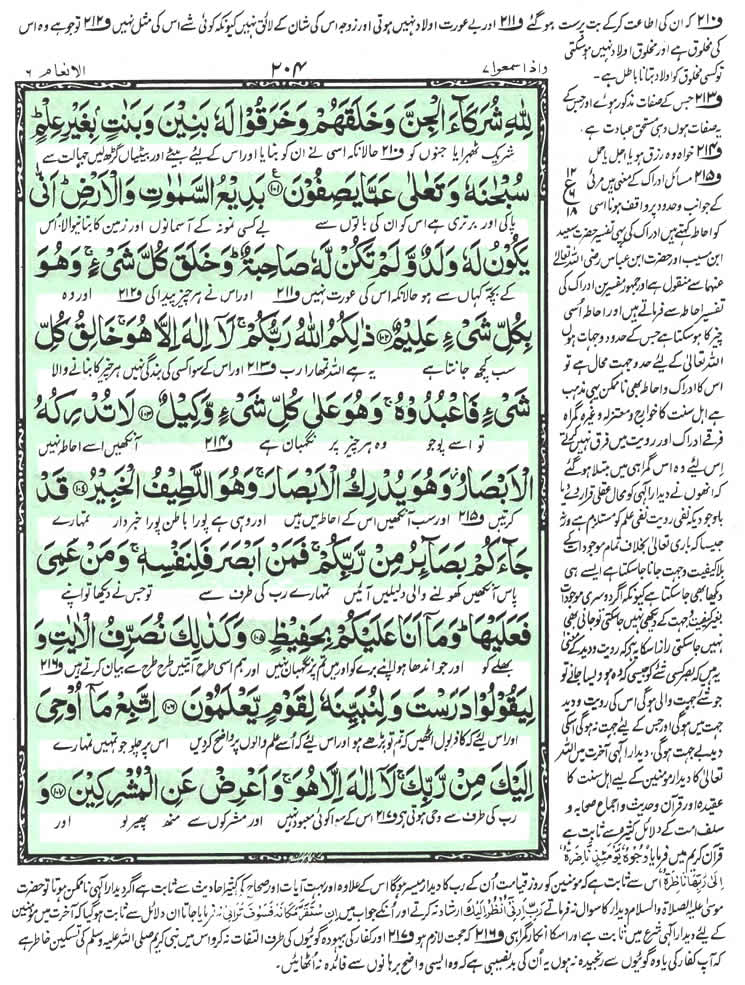 ف۲۱۰ کہ ان کی اطاعت کرکے بت پرست ہوگئے ف۲۱۱ اور بے عورت اولاد نہیں ہوتی اور زوجہ اس کی شان کے لائق نہیں کیونکہ کوئی شے اس کی مثل نہیں ف۲۱۲ تو جو ہے وہ اس
کی مخلوق ہے اور مخلوق اولاد نہیں ہوسکتی
تو کسی مخلوق کو اولاد بتانا باطل ہے۔
ف۲۱۳ جس کے صفات مذکور ہوئے اور جس کے
یہ صفات ہوں وہی مستحق عبادت ہے۔
ف۲۱۴ خواہ وہ رزق ہو یا اجل یا حمل
ف۲۱۵ مسائل ادراک کے معنی ہیں مرئی
کے جوانب و حدود پر واقف ہونا اسی
کو احاطہ کہتے ہیں ادراک کی یہی تفسیر حضرت سعید
ابن مسیب اور حضرت ابن عباس رضی اللہ تعالٰی
عنہما سے منقول ہے اور جمہور مفسرین ادراک کی
تفسیر احاطہ سے فرماتے ہیں اور احاطہ اسی
چیز کا ہوسکتا ہے جس کے حدود و جہات ہوں
اللہ تعالٰی کے لئے حد و جہت محال ہے تو
اس کا ادراک و احاطہ بھی ناممکن یہی مذہب
ہے اہل سنت کا خوارج و معتزلہ وغیرہ گمراہ
فرقے ادراک اور رویت میں فرق نہیں کرتے
اس لئے وہ اس گمراہی میں مبتلا ہوگئے
کہ انھوں نے دیدار الٰہی کو محال عقلی قرار دے دیا
باوجودیکہ نفی رویت نفی علم کو مستلزم ہے ورنہ
جیسا کہ باری تعالٰی بخلاف تمام موجودات کے
بلا کیفیت و جہت جانا جاسکتا ہے ایسے ہی
دیکھا بھی جاسکتا ہے کیونکہ اگر دوسری موجودات
بغیر کیفیت و جہت کے دیکھی نہیں جاسکتی تو جانی بھی
نہیں جاسکتی راز اس کا یہ ہے کہ رویت و دید کے معنی
یہ ہیں کہ بصر کسی شے کو جیسی کہ وہ ہو ویسا جانے تو
جو شے جہت والی ہوگی اس کی رویت و دید
جہت میں ہوگی اور جس کے لئے جہت نہ ہوگی اس کی
دید بے جہت ہوگی، دیدار الٰہی آخرت میں اللہ
تعالٰی کا دیدار مؤمنین کے لیے اہل سنت کا
عقیدہ اور قرآن و حدیث و اجماع صحابہ و
سلف امت کے دلائل کثیرہ سے ثابت ہے
قرآن کریم میں فرمایا وُجُوْهٌ یَّوْمَئِذٍ نَّاضِرَةٌ
۱۲
ع
۱۸
واذا سمعوا ۷
۲۰۴
الانعام ۶
لِلّٰهِ شُرَكَآءَ الْجِنَّ وَخَلَقَهُمْ وَخَرَقُوْا لَهٗ بَنِیْنَ وَبَنٰتٍۭ بِغَیْرِ عِلْمٍؕ
شریک ٹھہرایا جنوں کو ف۲۱۰ حالانکہ اسی نے ان کو بنایا اور اس کے لیئے بیٹے اور بیٹیاں گڑھ لیں جہالت سے
سُبْحٰنَهٗ وَتَعٰلٰی عَمَّا یَصِفُوْنَ۠ ﴿۱۰۰﴾ بَدِیْعُ السَّمٰوٰتِ وَالْاَرْضِؕ اَنّٰی
پاکی اور برتری ہے اس کو ان کی باتوں سے بے کسی نمونہ کے آسمانوں اور زمین کا بنانیوالا اُس
یَكُوْنُ لَهٗ وَلَدٌ وَّلَمْ تَكُنْ لَّهٗ صَاحِبَةٌؕ وَخَلَقَ كُلَّ شَیْءٍۚ وَهُوَ
کے بچہ کہاں سے ہو حالانکہ اس کی عورت نہیں ف۲۱۱ اور اس نے ہر چیز پیدا کی ف۲۱۲ اور وہ
بِكُلِّ شَیْءٍ عَلِیْمٌ ﴿۱۰۱﴾ ذٰلِكُمُ اللّٰهُ رَبُّكُمْۚ لَاۤ اِلٰهَ اِلَّا هُوَۚ خَالِقُ كُلِّ
سب کچھ جانتا ہے یہ ہے اللہ تمھارا رب ف۲۱۳ اور اس کے سوا کسی کی بندگی نہیں ہر چیز کا بنانے والا
شَیْءٍ فَاعْبُدُوْهُۚ وَهُوَ عَلٰی كُلِّ شَیْءٍ وَّكِیْلٌ ﴿۱۰۲﴾ لَا تُدْرِكُهُ
تو اسے پوجو وہ ہر چیز پر نگہبان ہے ف۲۱۴ آنکھیں اسے احاطہ نہیں
الْاَبْصَارُؗ وَهُوَ یُدْرِكُ الْاَبْصَارَۚ وَهُوَ اللَّطِیْفُ الْخَبِیْرُ ﴿۱۰۳﴾ قَدْ
کرتیں ف۲۱۵ اور سب آنکھیں اس کے احاطہ میں ہیں اور وہی ہے پورا باطن پورا خبردار تمہارے
جَآءَكُمْ بَصَآئِرُ مِنْ رَّبِّكُمْۚ فَمَنْ اَبْصَرَ فَلِنَفْسِهٖۚ وَمَنْ عَمِیَ
پاس آنکھیں کھولنے والی دلیلیں آئیں تمہارے رب کی طرف سے تو جس نے دیکھا تو اپنے
فَعَلَیْهَاؕ وَمَاۤ اَنَا عَلَیْكُمْ بِحَفِیْظٍ ﴿۱۰۴﴾ وَكَذٰلِكَ نُصَرِّفُ الْاٰیٰتِ وَ
بھلے کو اور جو اندھا ہوا اپنے برے کو اور میں تم پر نگہبان نہیں اور ہم اسی طرح آیتیں طرح طرح سے بیان کرتے ہیں ف۲۱۶
لِیَقُوْلُوْا دَرَسْتَ وَلِنُبَیِّنَهٗ لِقَوْمٍ یَّعْلَمُوْنَ ﴿۱۰۵﴾ اِتَّبِعْ مَاۤ اُوْحِیَ
اور اس لیئے کہ کافر بول اٹھیں کہ تم تو پڑھے ہو اور اس لیئے کہ اُسے علم والوں پر واضح کر دیں اس پر چلو جو تمہیں تمہارے
اِلَیْكَ مِنْ رَّبِّكَۚ لَاۤ اِلٰهَ اِلَّا هُوَۚ وَاَعْرِضْ عَنِ الْمُشْرِكِیْنَ ﴿۱۰۶﴾ وَ
رب کی طرف سے وحی ہوتی ہے ف۲۱۷ اس کے سوا کوئی معبود نہیں اور مشرکوں سے منھ پھیر لو اور
اِلٰی رَبِّهَا نَاظِرَةٌ اس سے ثابت ہے کہ مؤمنین کو روز قیامت اُن کے رب کا دیدار میسر ہوگا اس کے علاوہ اور بہت آیات اور صحاح کی کثیر احادیث سے ثابت ہے اگر دیدار الٰہی ناممکن ہوتا تو حضرت
موسیٰ علیہ الصلاۃ والسلام دیدار کا سوال نہ فرماتے رَبِّ اَرِنِیْۤ اَنْظُرْ اِلَیْكَ ارشاد نہ کرتے اور اُنکے جواب میں اِنِ اسْتَقَرَّ مَكَانَهٗ فَسَوْفَ تَرٰىنِیْ نہ فرمایا جاتا ان دلائل سے ثابت ہوگیا کہ آخرت میں مؤمنین
کے لئے دیدار الٰہی شرع میں ثابت ہے اور اسکا انکار گمراہی ف۲۱۶ کہ حجت لازم ہو ف۲۱۷ اور کفار کی بیہودہ گوئیوں کی طرف التفات نہ کرو اس میں نبی کریم صلی اللہ علیہ وسلم کی تسکین خاطر ہے
کہ آپ کفار کی یاوہ گوئیوں سے رنجیدہ نہ ہوں یہ اُن کی بدنصیبی ہے کہ وہ ایسی واضح برہانوں سے فائدہ نہ اُٹھائیں۔